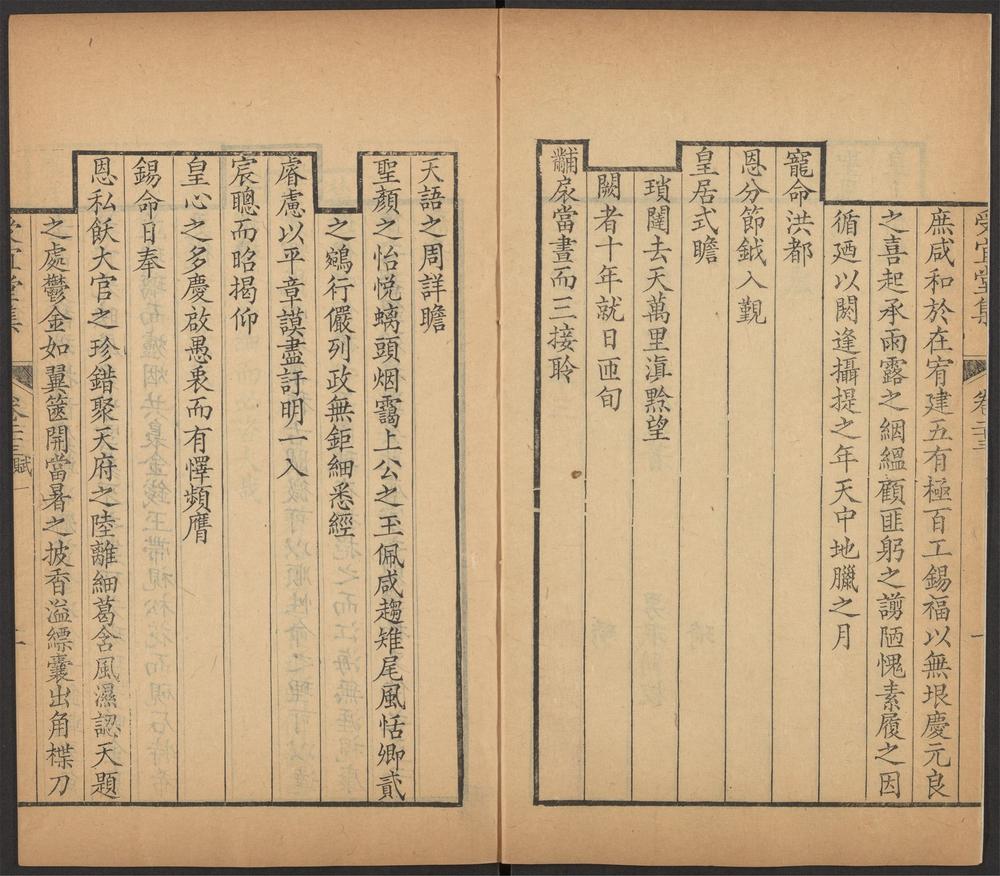 受宜堂集 卷二十三 一
庶咸和於在宥建五有極百工錫福以無垠慶元良
之喜起承雨露之絪縕顧匪躬之謭陋愧素履之因
循廼以閼逢攝提之年天中地臘之月
寵命洪都
恩分節鉞入覲
皇居式瞻
瑣闥去天萬里滇黔望
闕者十年就日匝旬
黼扆當晝而三接聆
天語之周詳瞻
聖顏之怡悅螭頭烟靄上公之玉佩咸趨雉尾風恬卿貳
之鵷行儼列政無鉅細悉經
睿慮以平章謨盡訏明一入
宸聰而昭揭仰
皇心之多慶啟愚衷而有懌頻膺
錫命日奉
恩私飫大官之珍錯聚天府之陸離細葛含風濕認天題
之處鬱金如翼篋開當暑之披香溢縹囊出角楪刀
受宜堂集 卷二十三 賦 一 二